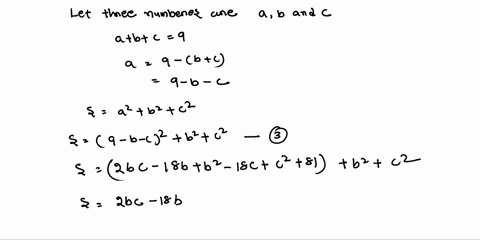 Let three numbenes are a, b and c
a+b+c = 9
a = 9-(b+c)
= 9-b-c
S = a² + b² + c²
S = (9-b-c)² + b² + c² — ③
S = (2bc - 18b + b² - 18c + c² + 81) + b² + c²
S = 2bc - 18b